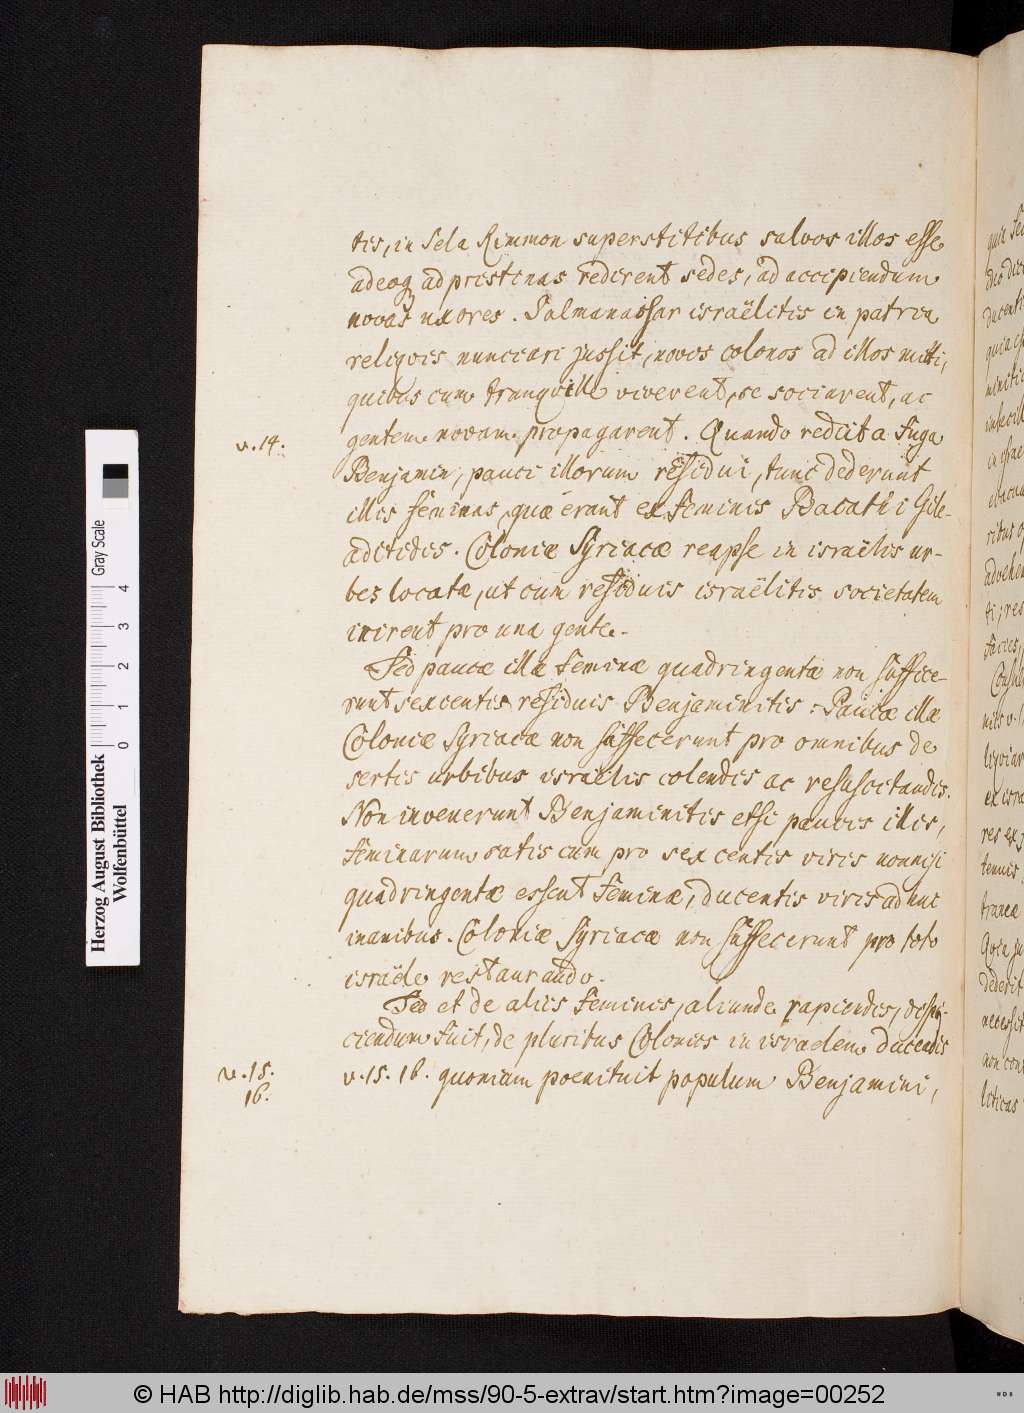 tis, in Sela Rimmon superstitibus salvos illos esse
adeoq adpristinas redirent sedes, ad accipiendum
novas uxores. Salmanassar israëlitis in patria
reliqvis nunciari jussit, novos colonos ad illos mitti,
quibus cum tranqville viverent, se sociarent, ac
v. 14.
gentem novam propagarent. Quando rediit a fuga
Benjamin, pauci illorum residui, tunc dederunt
illis feminas, quæ erant ex feminis Bacathi Gile-
aditidis. Coloniæ Syriacæ reapse in israëlis ur-
bes locatæ, ut cum residuis israëlitis societatem
inirent pro una gente.
Sed paucæ illæ feminæ quadringentæ non suffice-
runt sexcentis residuis Benjaminitis: Paucæ illæ
Coloniæ Syriacæ non suffecerunt pro omnibus de
sertis urbibus israëlis colendis ac resuscitandis.
Non invenerunt Benjaminitis etsi paucis illis,
feminarum satis cum pro sex centis viris nonnisi
quadringentæ essent feminæ, ducentis viris adhuc
inanibus. Coloniæ Syriacæ non suffecerunt pro toto
israële restaurando.
Sed et de aliis feminis, aliunde rapiendis, despi-
ciendum fuit, de pluribus Colonies in israelem ducendis
v. 15.
16.
v. 15. 16. quoniam poenituit populum Benjamini,
Herzog August Bibliothek
Wolfenbüttel
Gray Scale
0 1 2 3 4
© HAB http://diglib.hab.de/mss/90-5-extrav/start.htm?image=00252